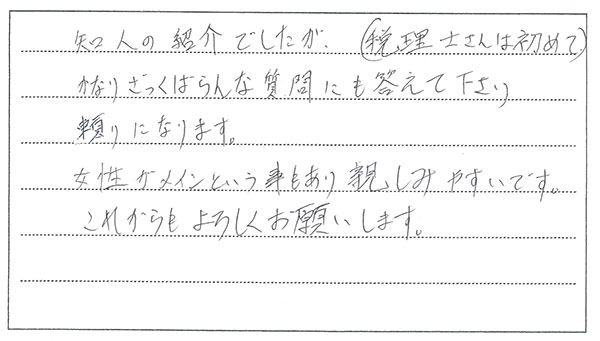 知人の紹介でしたが、(税理士さんは初めて)
かなりざっくばらんな質問にも答えて下さり
頼りになります。
女性がメインという事もあり親しみやすいです。
これからもよろしくお願いします。